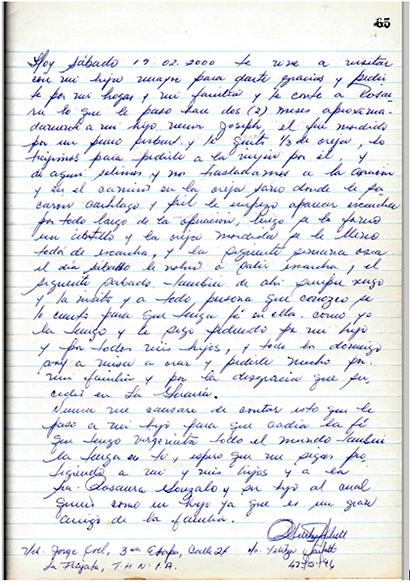 65
Hoy Sábado 19.02.2000 te vine a visitar
con mi hijo mayor para darte gracias y pedir
te por mi hogar y mi familia y te conte a Rosau
ra lo que le paso hace dos (2) meses aproxima
damente a mi hijo menor Joseph, el fue mordido
por un perro y le quitó 1/3 de oreja, lo
trajimos para pedirle a la virgen por él y
de aquí salimos y nos trasladamos a la operación
y en el camino en la oreja sano donde le sa
caron cartílago y piel le empezo aparecer escarcha
por todo largo de la operación, luego se la
un y la oreja mordida se le lleno
toda de escarcha, y la siguiente semana osea
el día sábado le volvió a salir escarcha, el
siguiente sábado también de ahí siempre vengo
y la visito y a toda persona que conozco se
lo cuento para que tenga fé en ella como yo
la tengo y le sigo pidiendo por mi hijo
y por todos mis hijos, y todo los domingo
voy a misa a orar y pedirle mucho por
mi familia y por la desgracia que su
cedió en La Guaira.
Nunca me cansare de contar esto que le
paso a mi hijo para que cadía la fé
que tengo virgencita todo el mundo también
la tenga en tí, espero que me sigas pro
tegiendo a mi y mis hijos y a la
Sra. Rosaura Gonzalo y su hijo al cual
quiero como un hijo ya que es un gran
amigo de la familia.
Urb. Jorge Coll, 3era Etapa, Calle 24
La T.H.N.I.A.